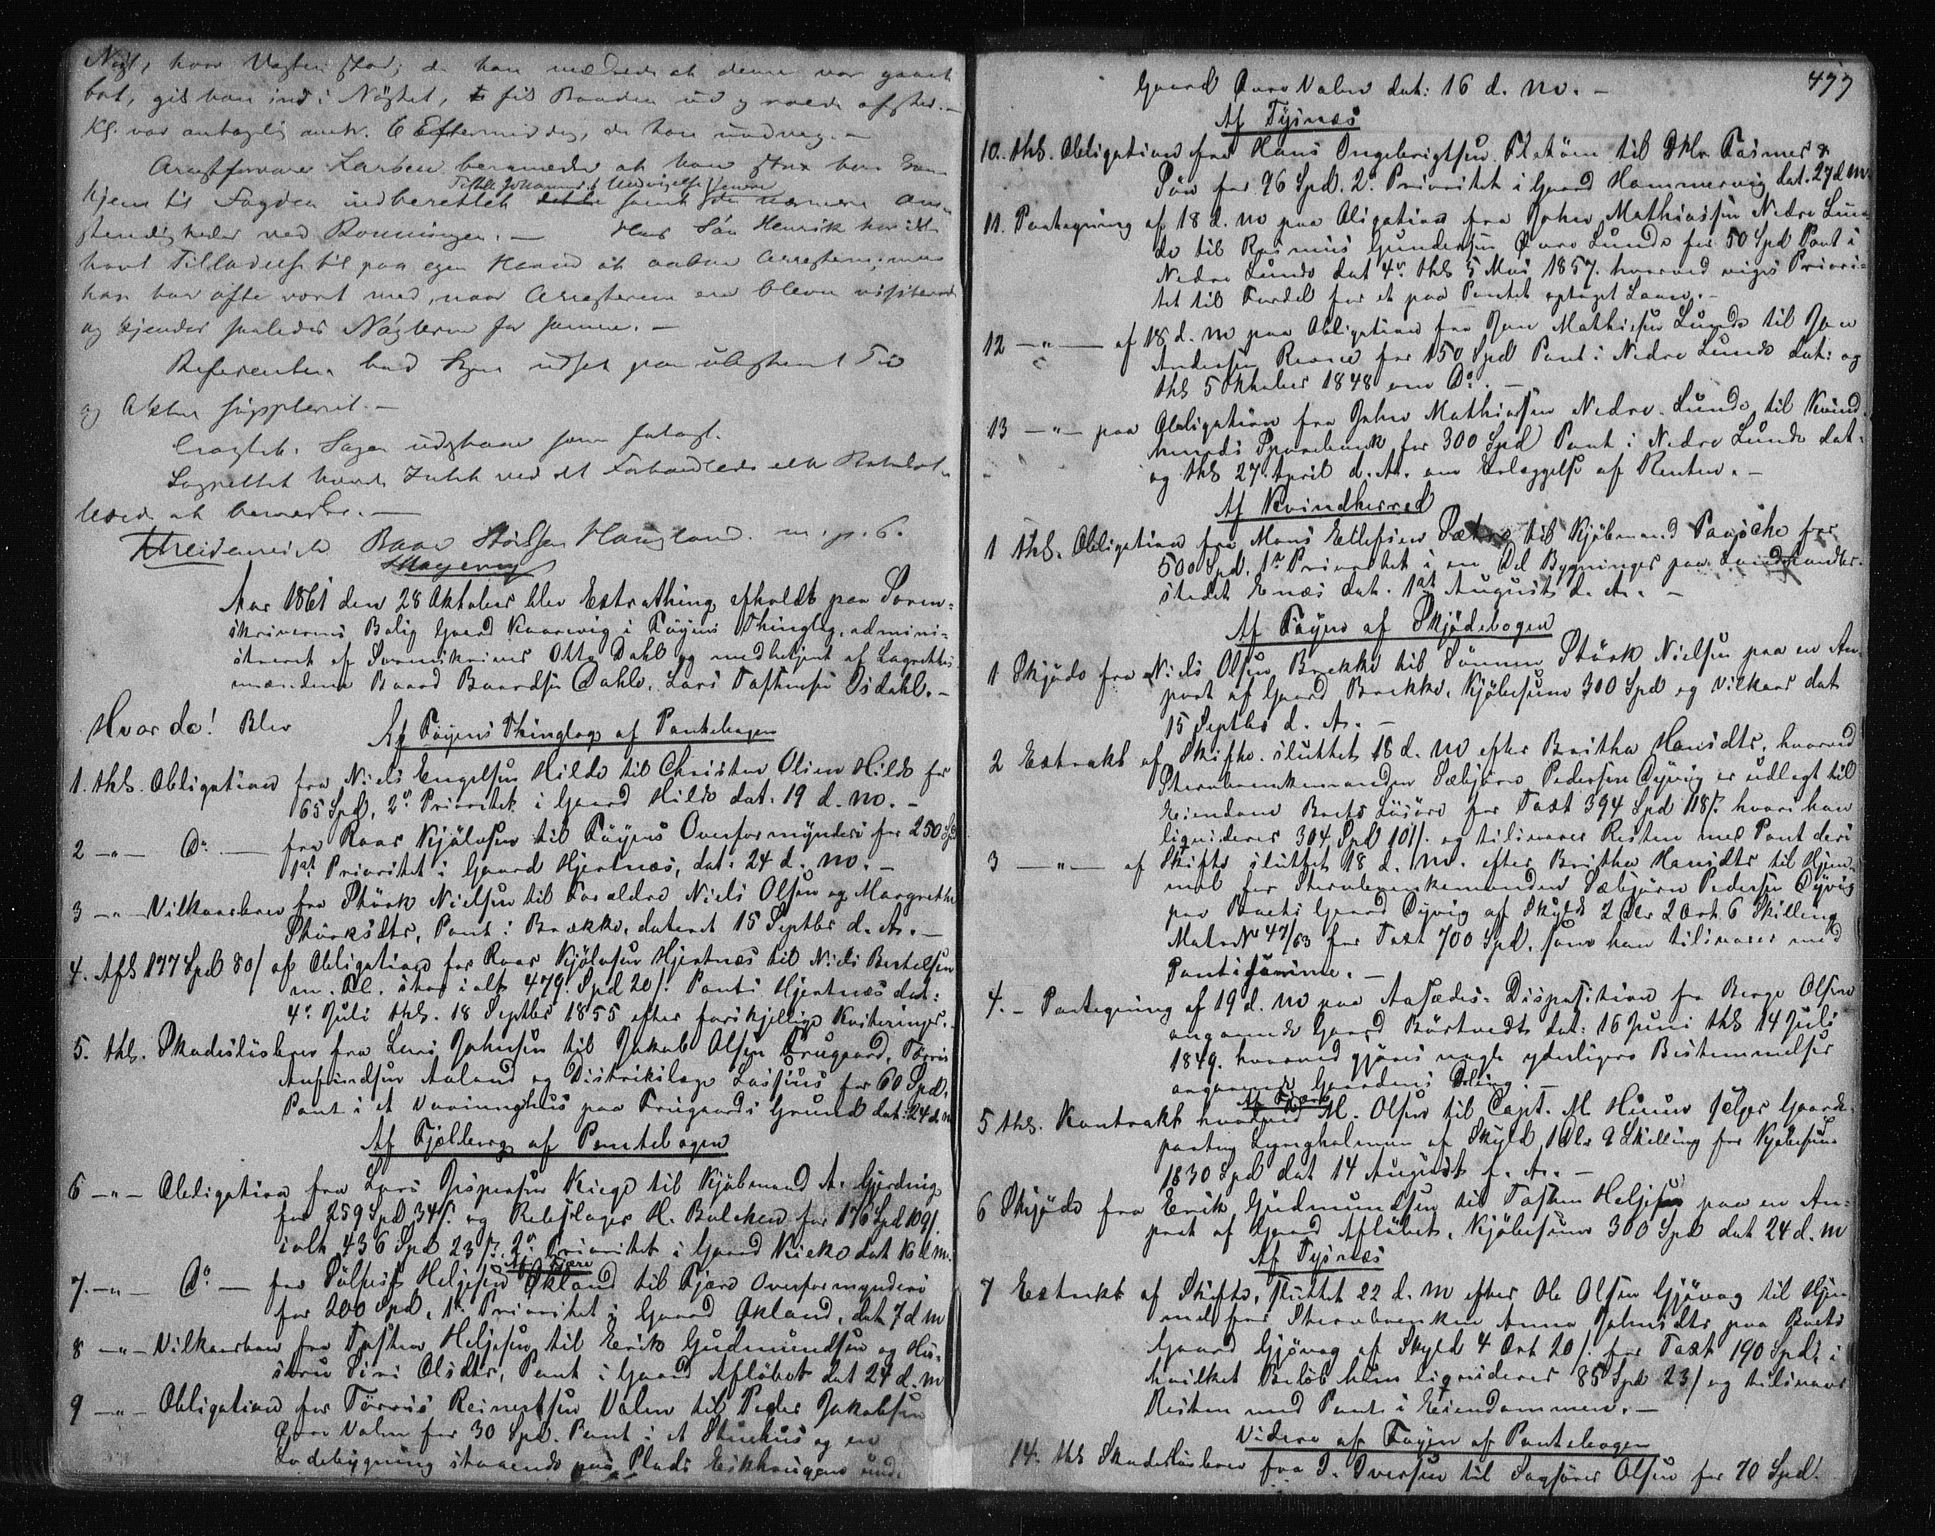 Nøst, hvor Vagten stod; da han mærkede at denne var gaaet
bort, gik han ind i Nøstet, fik Baaden ud og roede afsted. —
Kl. var antagelig omtr. 6 Eftermiddag, da han undveg. —
Arrestforvarer Larsen bemærkede at han strax han kom
hjem til Fogden indberettede samt de nærmere om-
stændigheder ved Rømningen. — Hans Søn Henrik har ikke
havt Tilladelse til paa egen Haand at aabne Arresterne; men
han har ofte været med, naar Arresterne ere bleven visiterede
og kjender saaledes Nøglerne før samme. —
Referenten bad Sagen udsat paa ubestemt Tid
og Akten suppleret. —
Eragtet. Sagen udstaar som fatagt.
Lagrettet havde Intet ved det Forhandlede eller Protokol-
lerede at bemærke. —
Baar Størksen Haugland. m. p. P.
Aar 1861 den 28 Oktober blev Extrathing afholdt paa Soren-
skriverens Bolig Gaard Kaarevig i Føyens Thinglag, admini-
streret af Sorenskriver Otto Dahl og medbetjent af Lagrettes-
mændene Baard Baardsen Dahle, Lars Tostensen Isdahl. —
Hvor da! Blev
Af Føyens Thinglag af Pantebogen
1. thl. Obligation fra Niels Engelsen Hilde til Christen Olsen Hilde for
65 Spd, 2n Prioritet i Gaard Hilde dat. 19 d. M. —
2 — " — Do — fra Roar Kjølvsen til Føyens Overformynderi for 250 Spd
1st Prioritet i Gaard Hjertnæs, dat: 24 d. M. —
3 — " — Vilkaarsbrev fra Størk Nielsen til Forældre Niels Olsen og Margrethe
Størksdtr, Pant i Brække, dateret 15 Septbr d. A. —
4. Afl 177 Spd 80/ af Obligation fra Roar Kjølvsen Hjertnæs til Niels Bertelsen
m. fl. stor ialt 479 Spd 20/. Pant i Hjertnæs dat:
4r Juli thl. 18 Septbr 1855 efter forskjellige Kvitteringer. —
5. thl. Skadesløsbrev fra Lars Johnsen til Jakob Olsen Trugaard,
Anfindsen Aaland og Distriktslæge Lassius for 60 Spd,
Pant i et Vaaningshus paa Trugaards Grund dat: 24 d. M
Af Fjelberg af Pantebogen
6 — " — Obligation fra Lars Jespersen Kiege til Kjøbmand A. Gjerding
for 259 Spd 34/. og Rebslager H. Balchen for 176 Spd 109/.
ialt 436 Spd 23/. 2n Prioritet i Gaard Kieke dat 16 d. M.
Af Fjære
7. — " — Do — fra Helgesen Økland til Fjære Overformynderi
for 200 Spd, 1n Prioritet i Gaard Økland, dat 7 d M
8 — " — Vilkaarsbrev fra Tosten Heljesen til Erik Gudmundsen og Hu-
stru Siri Olsdtr, Pant i Gaard Afløbet dat 24 d. M
9 — " — Obligation fra Tørris Reinertsen Valen til Peder Jakobsen
Øvre Valen for 30 Spd. Pant i et Stuehus og en
Ladebygning staaende paa Plads under
477
Gaard Øvre Valen dat: 16 d. M. —
Af Tysnæs
10. thl. Obligation fra Hans Ingebrigtsen Flatøen til Fasmer &
Søn for 96 Spd. 2n Prioritet i Gaard Hammervig dat. 27 d M.
11. Paategning af 18 d. M paa Obligation fra John Mathiassen Nedre Lun-
de til Rasmus Gundersen Øvre Lunde for 50 Spd Pant i
Nedre Lunde dat 4r thl 5 Mai 1857. hvorved viges Priori-
tet til Fordel for et paa Pantet optaget Laan. —
12 — " — af 18 d. M paa Obligation fra Jon Mathiesen Lunde til Jon
Andersen for 150 Spd Pant i Nedre Lunde dat: og
thl 5 Oktober 1848 om Do. —
13 — " — paa Obligation fra John Mathiassen Nedre Lunde til Kvind-
herreds Sparebank for 300 Spd Pant i Nedre Lunde dat:
og thl 27 April d. A. om Erlæggelse af Renten. —
Af Kvindherred
1 thl. Obligation fra Mons Ellefsen Sætre til Kjøbmand Paasche for
500 Spd. 1n Prioritet i en Del Bygninger paa Landhandler-
stedet Enæs dat. 1st August d. A. —
Af Føyen af Skjødebogen
1 Skjøde fra Niels Olsen Brekke til Sønnen Størk Nielsen paa en An-
part af Gaard Brække, Kjøbesum 300 Spd og Vilkaar dat
15 Septbr d. A. —
2 Extrakt af Skifte sluttet 18 d. M efter Britha Hansdtr, hvorved
Sterboenkemanden Sæbjørn Pedersen Dyvig er udlagt til
Eiendom Boets Løsøre for Taxt 394 Spd 118/. hvori han
liqviderer 304 Spd 101/. og tilsvarer Resten med Pant deri
3 — " — af Skifte sluttet 18 d. M. efter Britha Hansdtr til Hjem-
mel for Sterboenkemanden Sæbjørn Pedersen Dyvig
paa Boets Gaard Dyvig af Skyld 2 Dlr 2 Ort 6 Skilling
Matr No 47/53 for Taxt 700 Spd. som han tilsvarer med
Pant i samme. —
4. — Paategning af 19 d. M paa Aasædes-Disposition fra Berge Olsen
angaaende Gaard Børtvedt dat: 16 Juni thl 14 Juli
1849. hvorved gjøres nogle yderligere Bestemmelser
angaaende Gaardens Deling. —
5 thl. Kontrakt hvorved M. Olsen til Capt. M. Huun sælger Gaard-
parten Lyngholmen af Skyld 1 Dlr 9 Skilling for Kjøbesum
1830 Spd dat 14 August f. A. —
6 Skjøde fra Erik Gudmundsen til Tosten Heljesen paa en An-
part af Gaard Afløbet, Kjøbesum 300 Spd dat 24 d. M
Af Tysnæs
7 Extrakt af Skifte, sluttet 22 d. M efter Ole Olsen Gjøvog til Hjem-
mel for Sterboenken Anna Johnsdtr paa Boets
Gaard Gjøvog af Skyld 4 Ort 20/. for Taxt 190 Spd, i
hvilket Beløb hun liqviderer 85 Spd 23/ og tilsvarer
Resten med Pant i Eiendommen. —
Videre af Føyen af Pantebogen
14. thl Skadesløsbrev fra I. Iversen til Sagfører Olsen for 70 Spd.